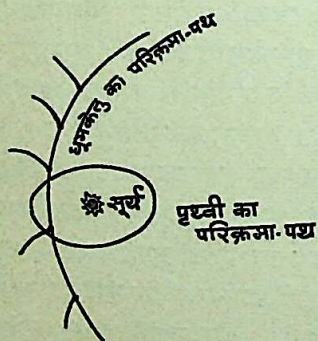 धूमकेतु का परिक्रमा-पथ
सूर्य
पृथ्वी का
परिक्रमा-पथ